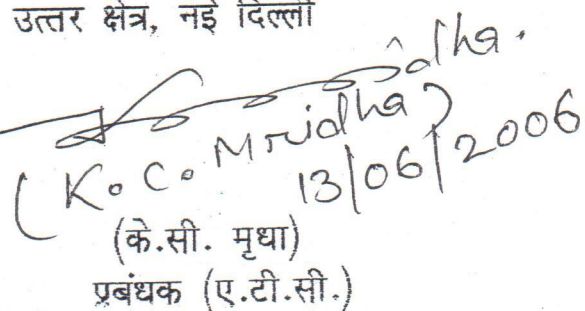 उत्तर क्षेत्र, नई दिल्ली
(K. C. Mridha)
13/06/2006
(के.सी. मृधा)
प्रबंधक (ए.टी.सी.)